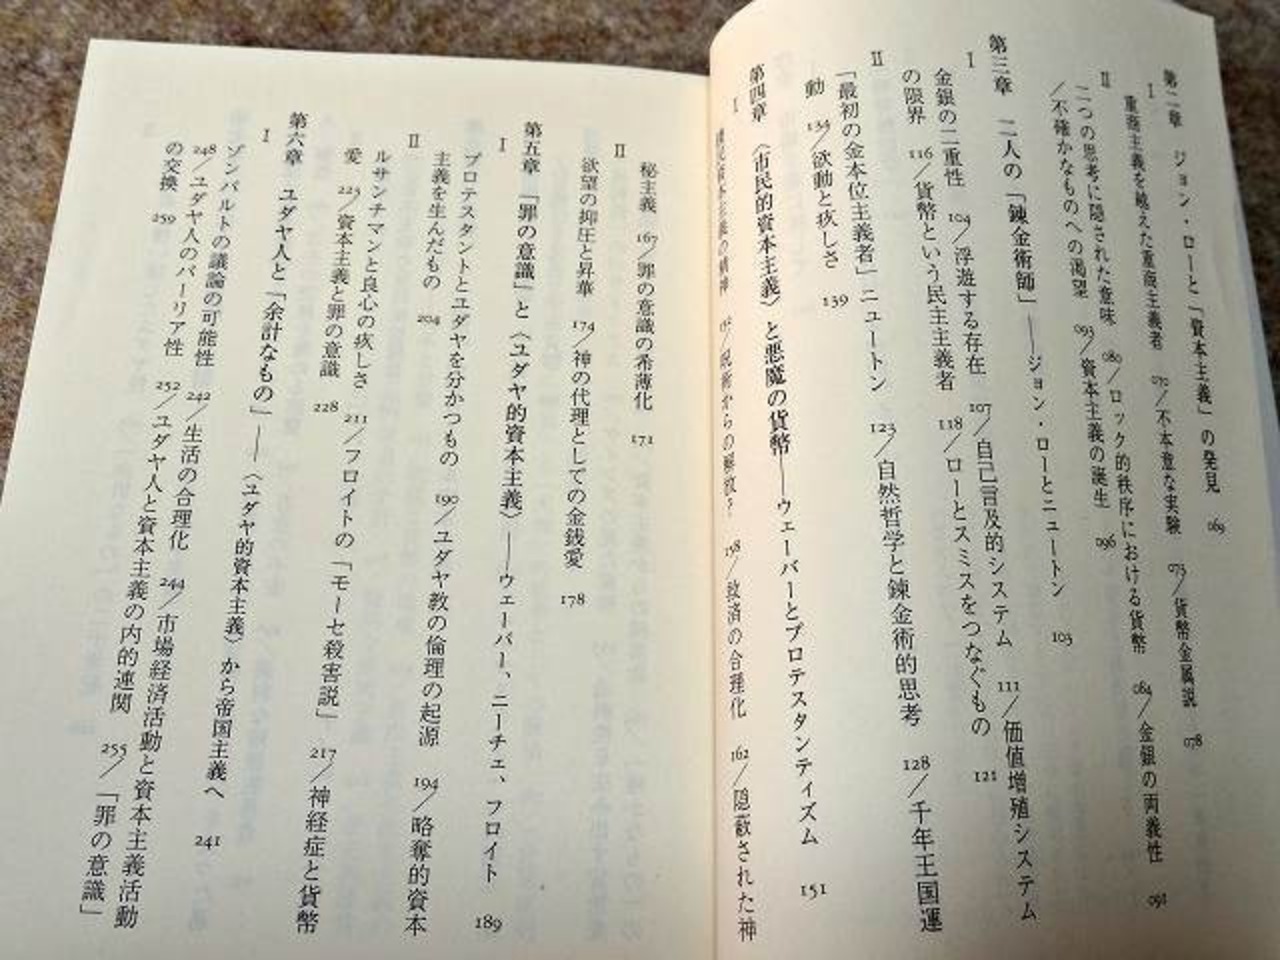 第二章　ジョン・ローと「資本主義」の発見　069
Ⅰ
重商主義を越えた重商主義者　072／不本意な実験　075／貨幣金属説　078
Ⅱ
二つの思考に隠された意味　080／ロック的秩序における貨幣　084／金銀の両義性　091
／不確かなものへの渇望　093／資本主義の誕生　096
第三章　二人の「錬金術師」――ジョン・ローとニュートン　103
Ⅰ
金銀の二重性　104／浮遊する存在　107／自己言及的システム　111／価値増殖システム
の限界　116／貨幣という民主主義者　118／ローとスミスをつなぐもの　121
Ⅱ
「最初の金本位主義者」ニュートン　123／自然哲学と錬金術的思考　128／千年王国運
動　134／欲動と疚しさ　139
第四章　〈市民的資本主義〉と悪魔の貨幣――ウェーバーとプロテスタンティズム　151
Ⅰ
資本主義の精神　152／呪術からの解放？　158／救済の合理化　162／隠蔽された神
秘主義　167／罪の意識の希薄化　171
Ⅱ
欲望の抑圧と昇華　174／神の代理としての金銭愛　178
第五章　「罪の意識」と〈ユダヤ的資本主義〉――ウェーバー、ニーチェ、フロイト　189
Ⅰ
プロテスタントとユダヤを分かつもの　190／ユダヤ教の倫理の起源　194／略奪的資本
主義を生んだもの　204
Ⅱ
ルサンチマンと良心の疚しさ　211／フロイトの「モーセ殺害説」　217／神経症と貨幣
愛　225／資本主義と罪の意識　228
第六章　ユダヤ人と「余計なもの」――〈ユダヤ的資本主義〉から帝国主義へ　241
Ⅰ
ゾンバルトの議論の可能性　242／生活の合理化　244／市場経済活動と資本主義活動
248／ユダヤ人のパーリア性　252／ユダヤ人と資本主義の内的連関　255／「罪の意識」
の交換　259